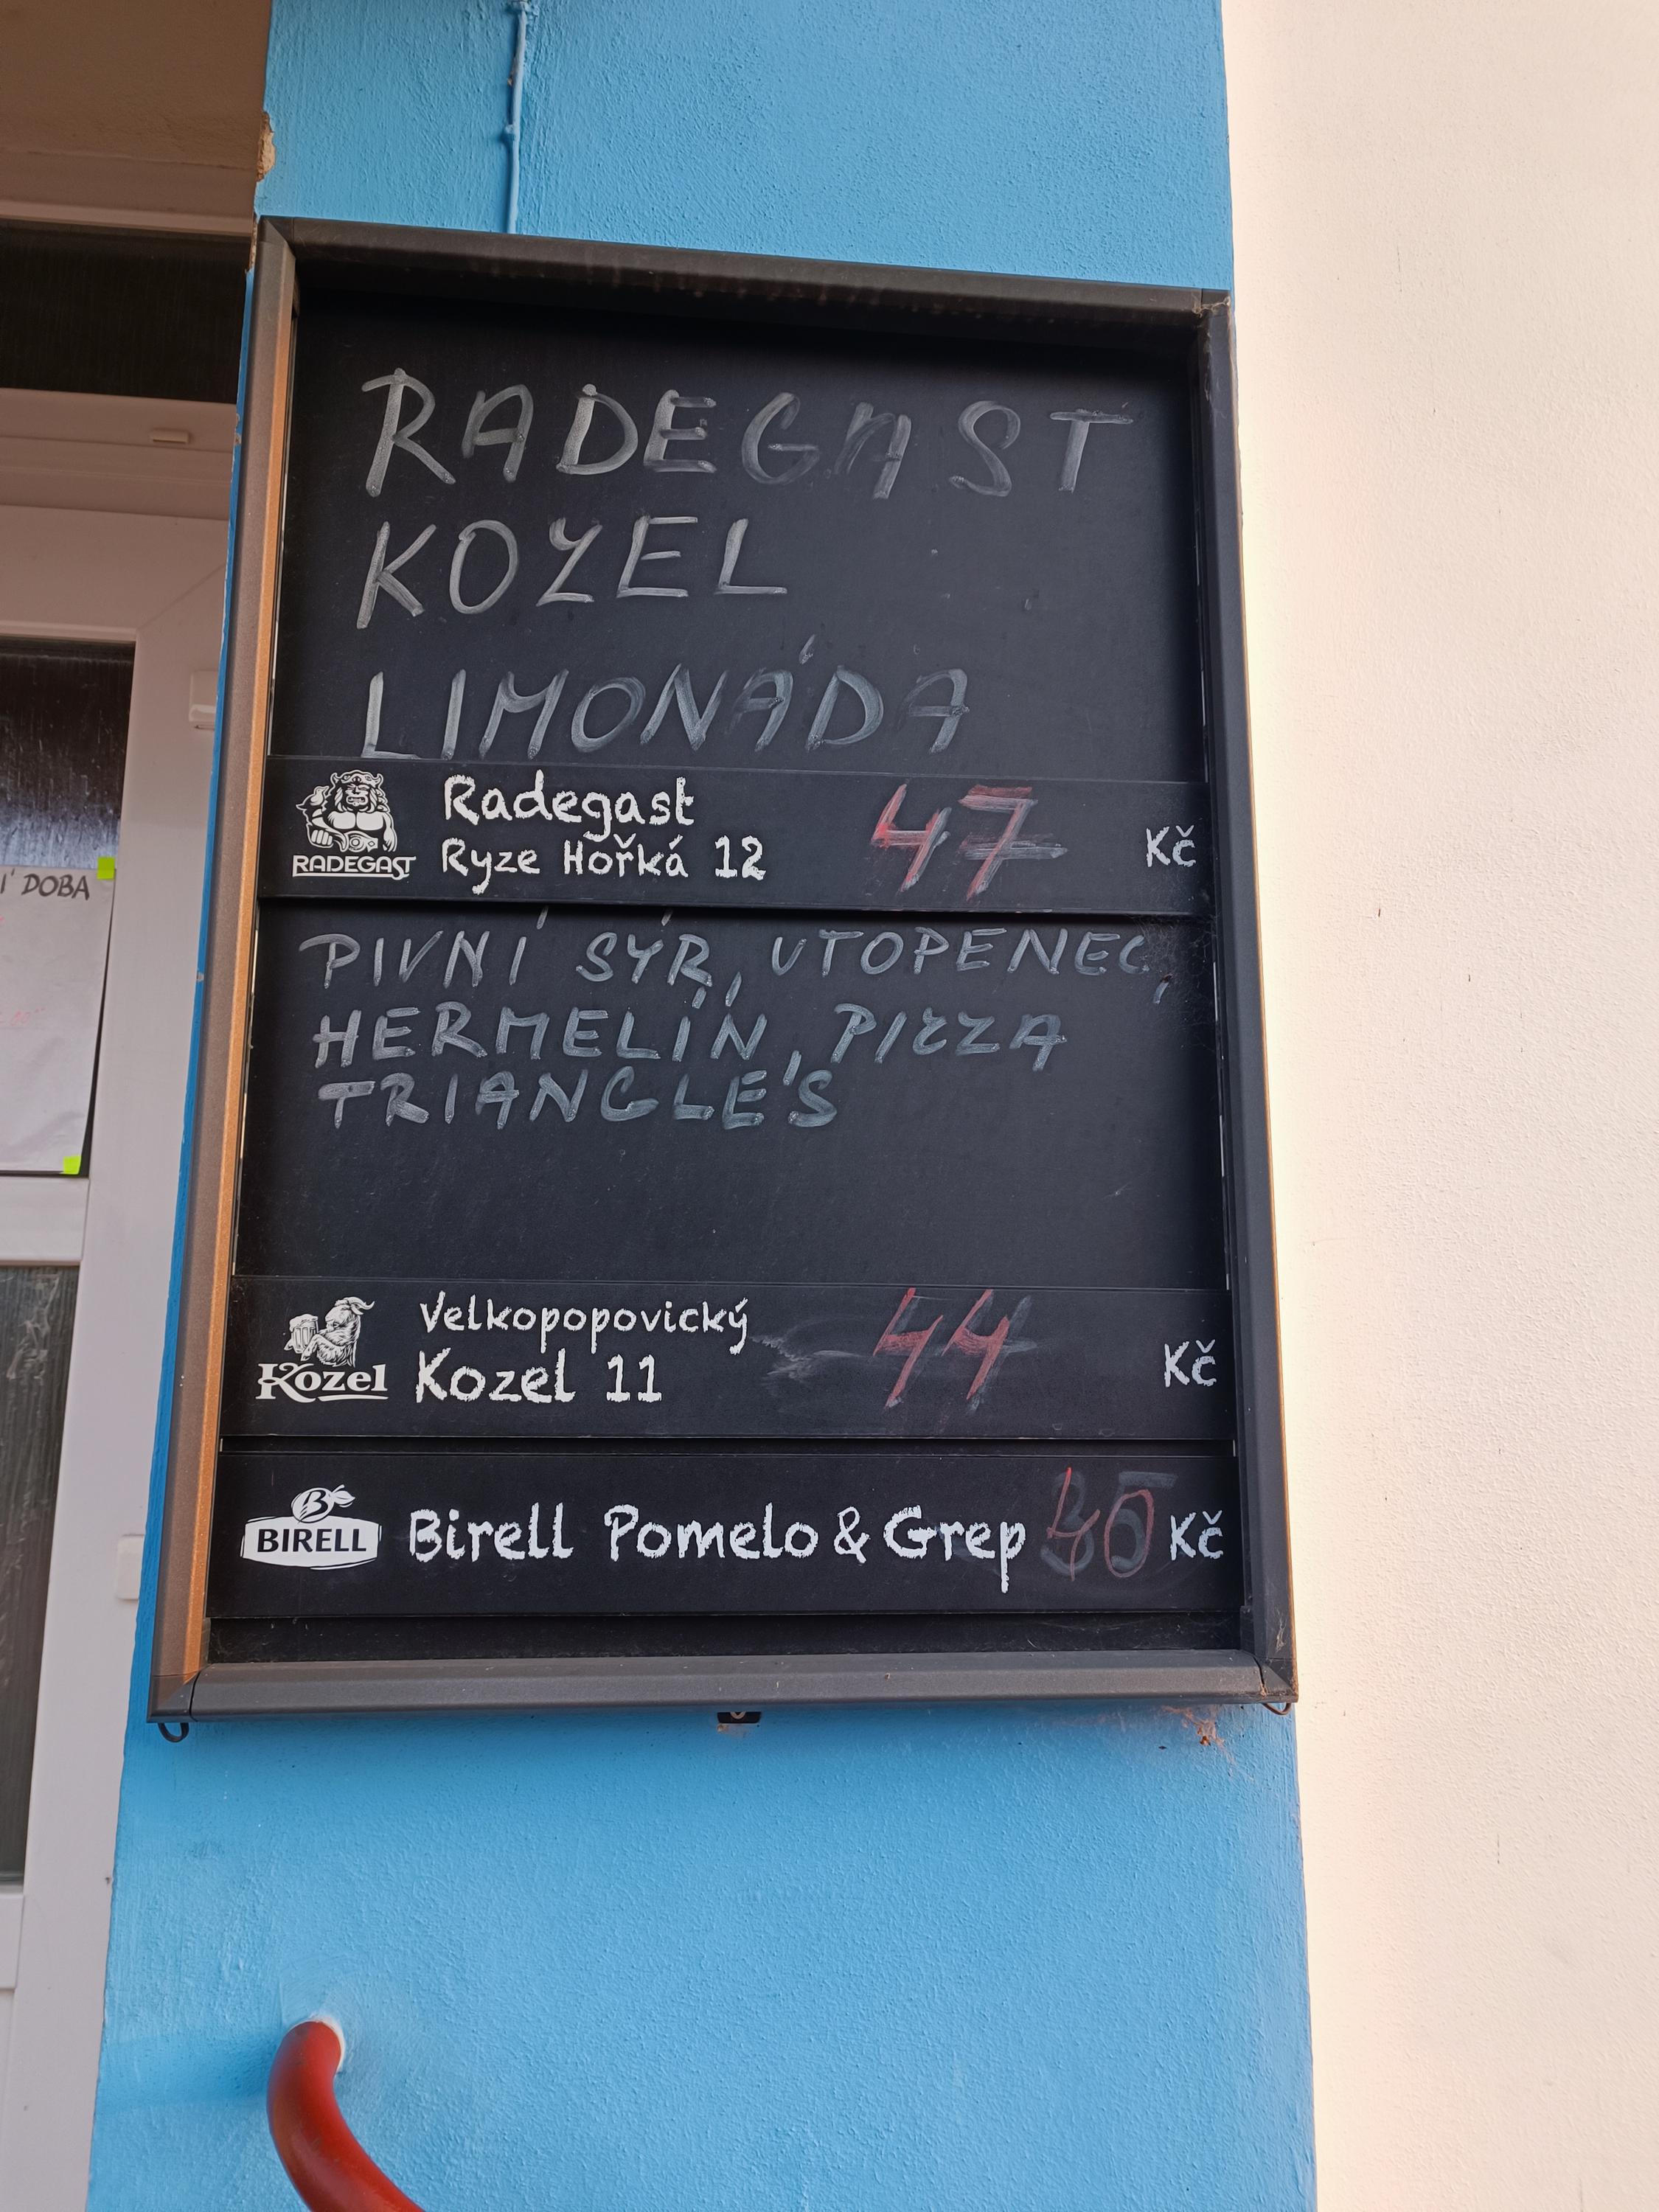 RADEGAST
KOZEL
LIMONÁDA
RADEGAST
Radegast
Ryze Hořká 12 47 Kč
PIVNÍ SÝR, UTOPENEC,
HERMELÍN, PIZZA
TRIANGLE'S
Kozel
Velkopopovický
Kozel 11 44 Kč
BIRELL
Birell Pomelo & Grep 40 Kč
DOBA